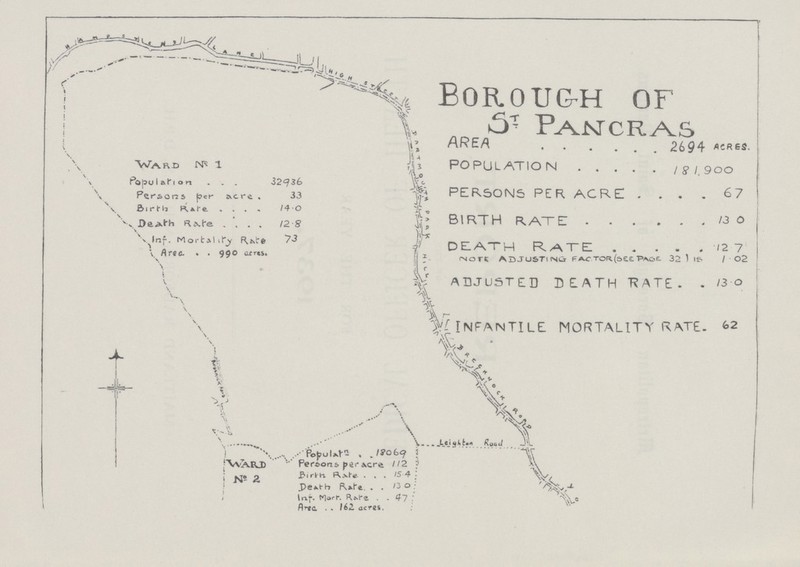 HAMPSTEAD LANE
HIGH STREET
DARTMOUTH PARK HILL
BOROUGH OF
ST. PANCRAS
AREA . . . . . . 2694 ACRES.
POPULATION . . . . . 181,900
PERSONS PER ACRE . . . . 67
BIRTH RATE . . . . . . 13 0
DEATH RATE . . . . . 12 7
NOTE ADJUSTING FACTOR (SEE PAGE 32) IS 1·02
ADJUSTED DEATH RATE. . 13·0
INFANTILE MORTALITY RATE. 62
WARD No. 1
Population . . . 32936
Persons per acre . 33
Birth Rate . . . . 14·0
Death Rate . . . . 12·8
Inf. Mortality Rate 73
Area . . 990 acres.
BRECKNOCK ROAD
Leighton Road
WARD
No. 2
Populatn . . 18069
Persons per acre 112
Birth Rate . . . 15·4
Death Rate . . 13 0
Inf. Mort. Rate . . 47
Area . . 162 acres.